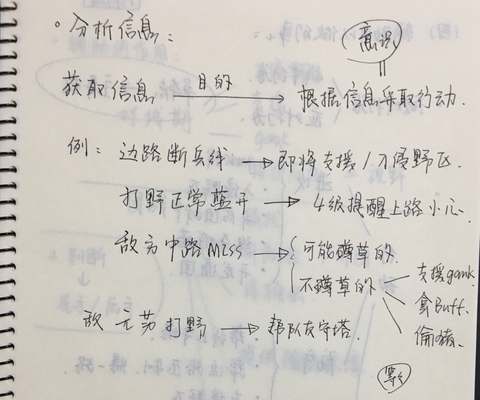 。分析信息：
意识
获取信息 目的→ 根据信息采取行动.
例：边路断兵线→即将支援/入侵野区.
打野正常蓝开→4级提醒上路小心.
敌方中路Miss→可能蹲草的.
不蹲草的 支援gank.
拿Buff.
偷猪.
敌 元芳打野→帮队友守塔.